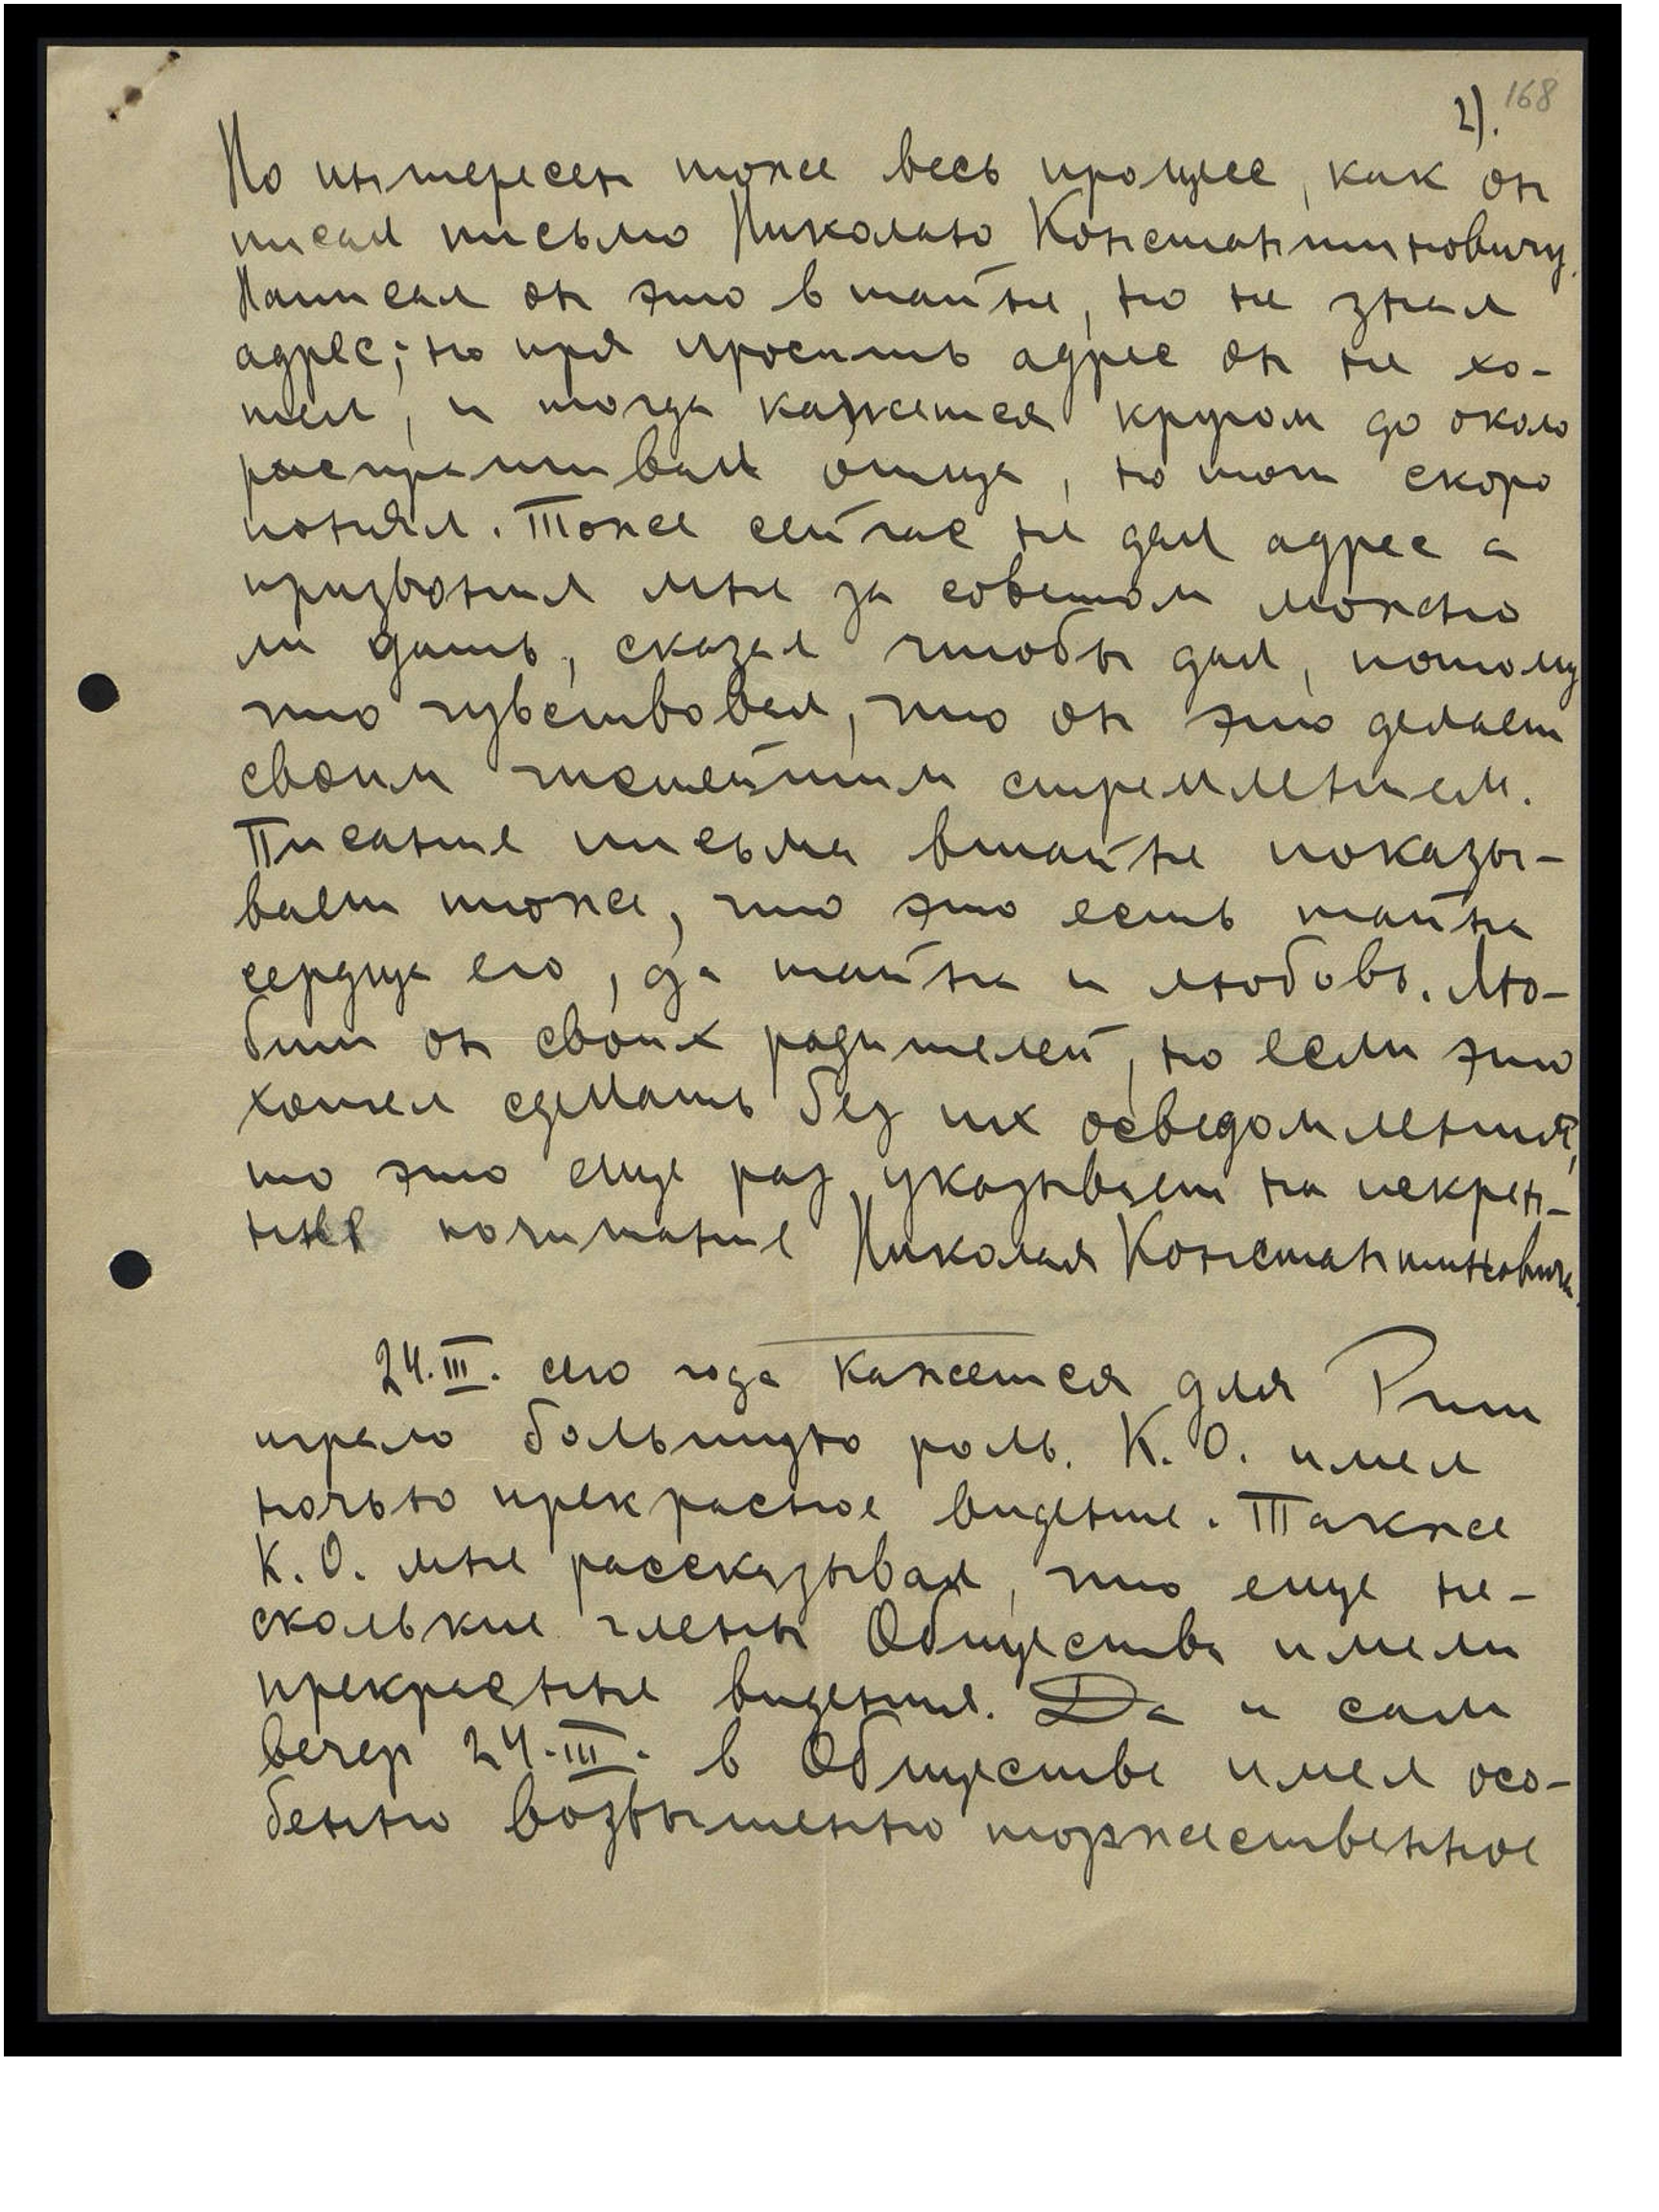 2). 168
Но интересен тоже весь процесс, как он
писал письмо Николаю Константиновичу.
Написал он это в тайне, но не знал
адрес; но пря просить адрес он не хо-
тел, и тогда кажется кругом до около
распрашивал отца, но тот скоро
понял. Тоже сейчас не дал адрес а
призвонил мне за советом можно
ли дать, сказал чтобы дал, потому
что чувствовал, что он это делает
своим чистейшим стремлением.
Писание письма втайне показы-
вает тоже, что это есть тайна
сердца его, да тайна и любовь. Лю-
бит он своих родителей, но если это
хотел сделать без их осведомления,
то это еще раз указывает на искрен-
нее почитание Николая Константиновича.
24.III. сего года кажется для Рит
играло большую роль. К. О. имел
ночью прекрасное видение. Также
К. О. мне рассказывал, что еще не-
сколькие члены Общества имели
прекрасные видения. Да и сам
вечер 24.III. в Обществе имел осо-
бенно возвышенно торжественное